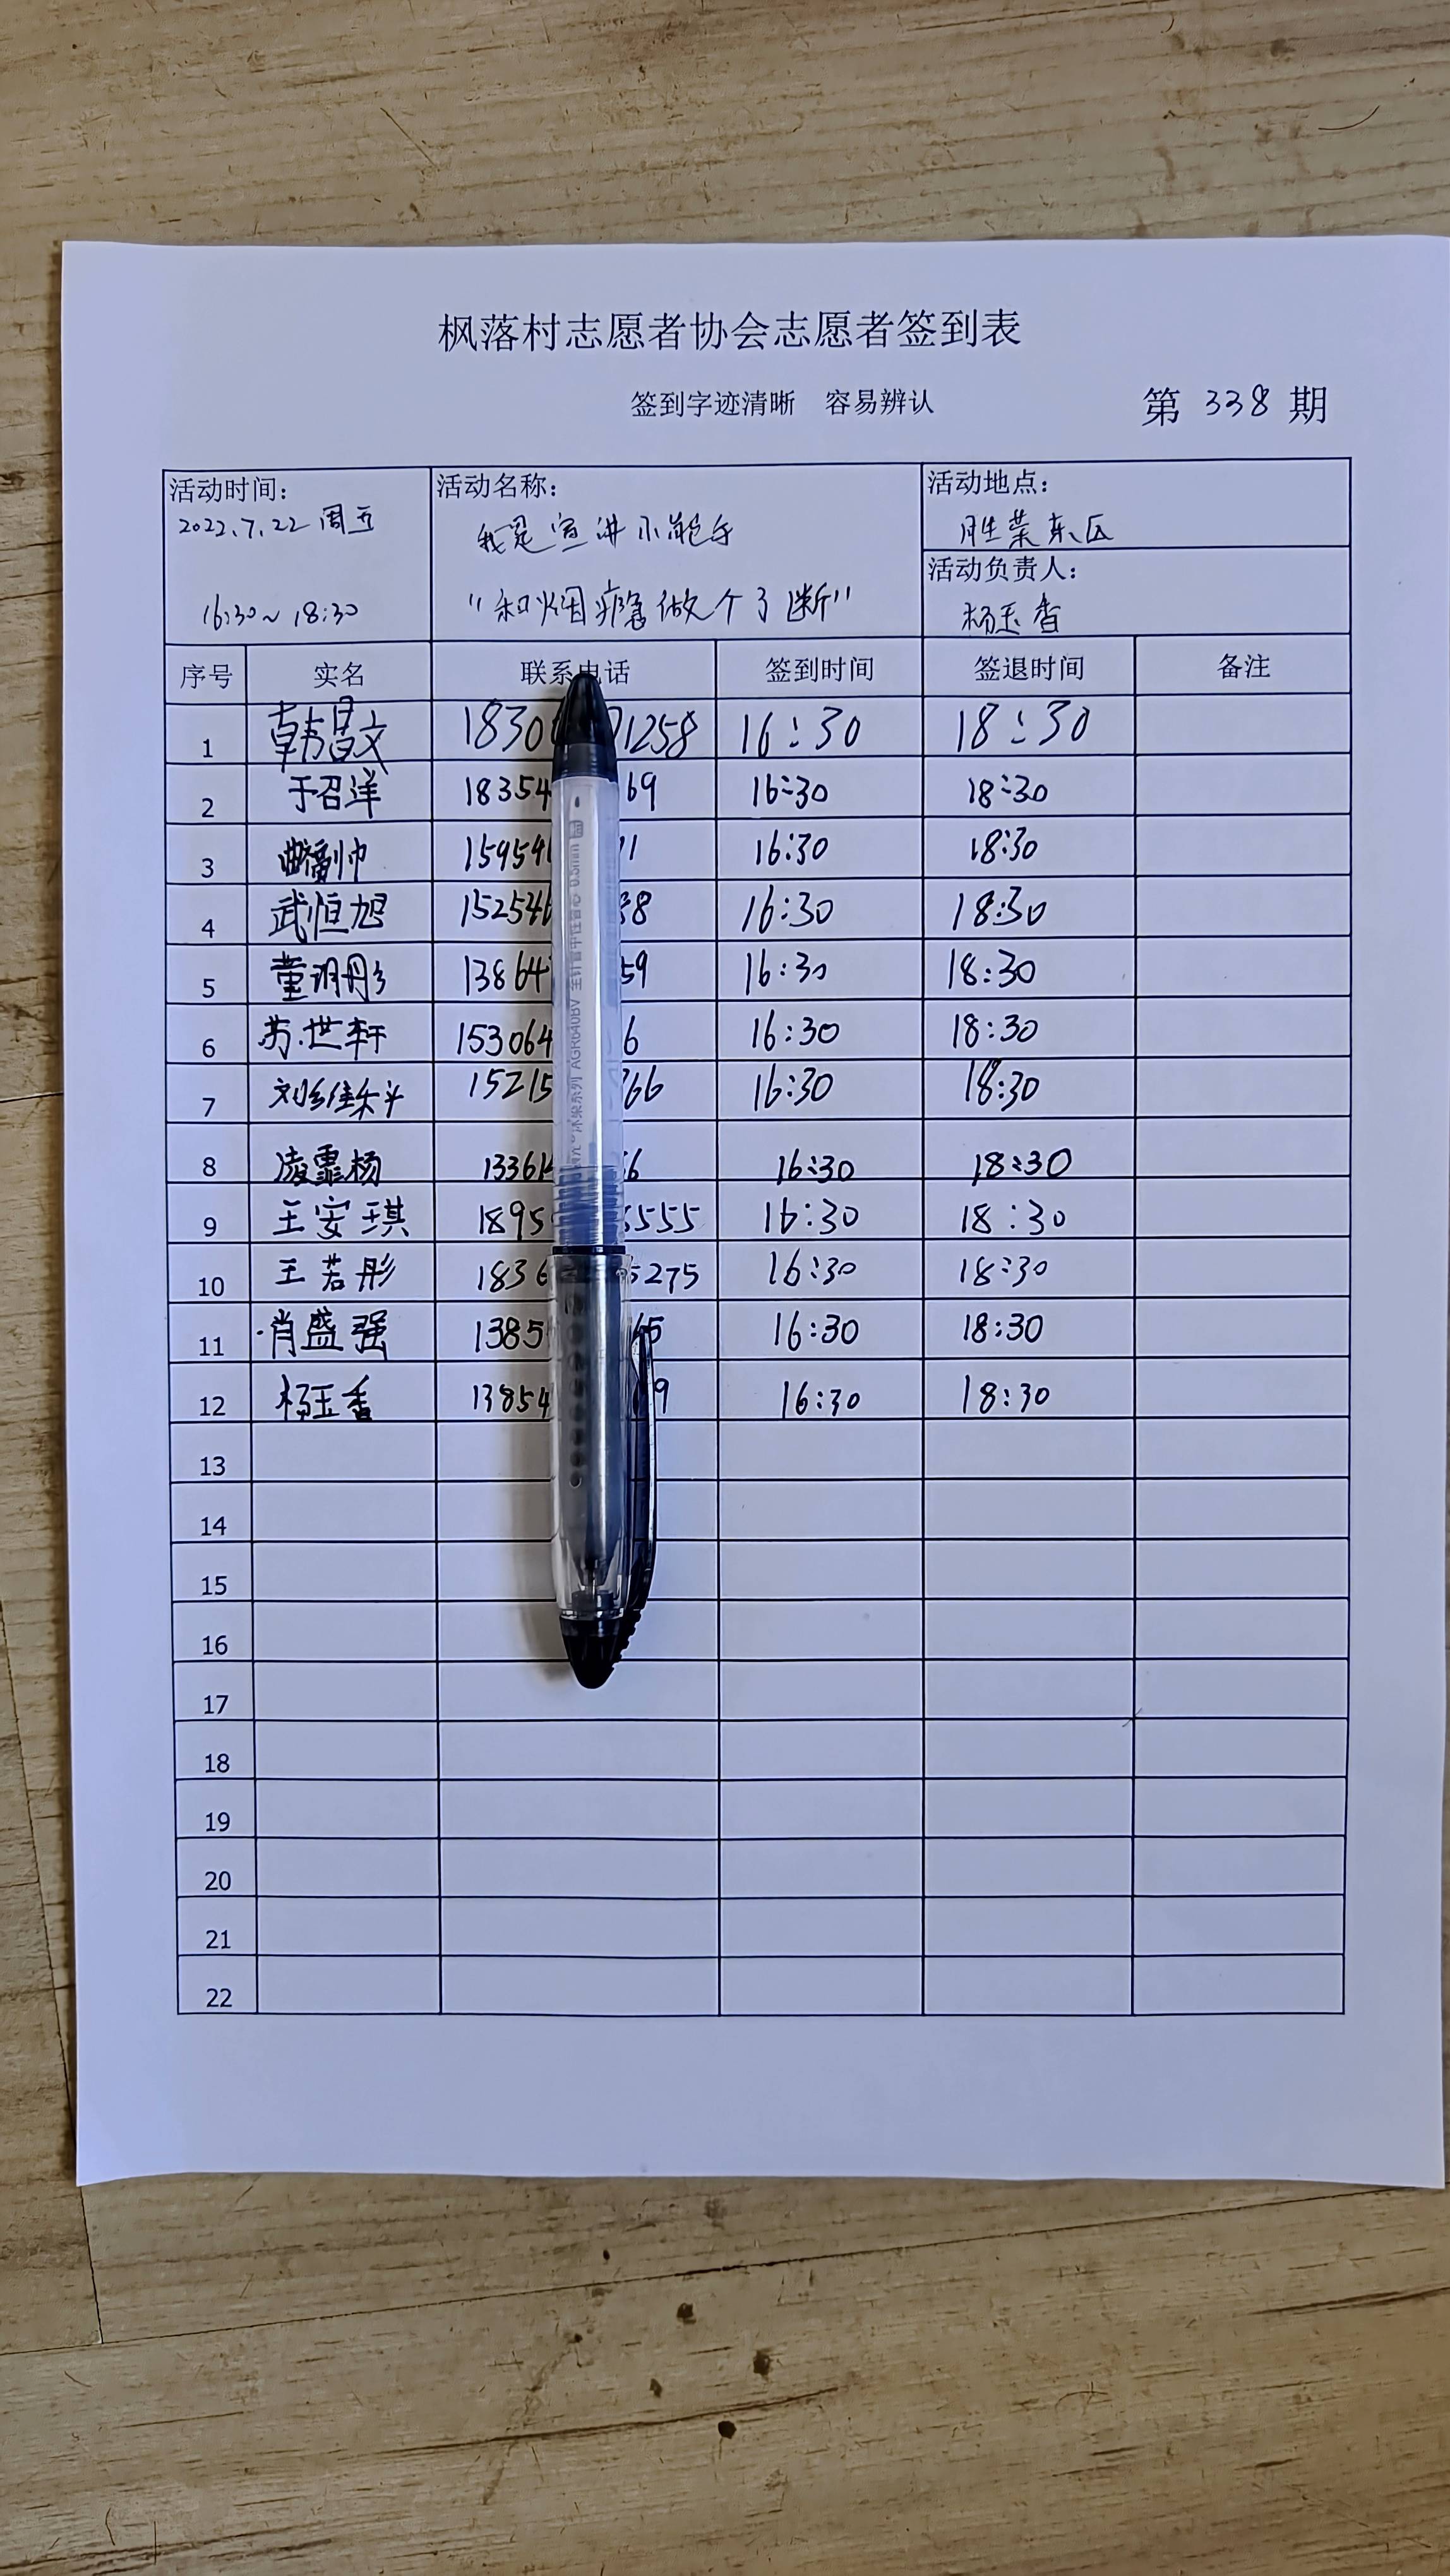 枫落村志愿者协会志愿者签到表
签到字迹清晰 容易辨认 第 338 期
活动时间： 活动名称： 活动地点：
2022.7.22 周五 我是宣讲小能手 胜荣东区
活动负责人：
16:30~18:30 "和烟瘾做个了断" 杨玉香
序号 实名 联系电话 签到时间 签退时间 备注
1 韩昌文 1830 1258 16:30 18:30
2 于召洋 18354 69 16:30 18:30
3 15954 1 16:30 18:30
4 武恒旭 15254 88 16:30 18:30
5 董玥彤 13864 59 16:30 18:30
6 苏世轩 153064 6 16:30 18:30
7 15215 766 16:30 18:30
8 凌霏杨 13361 6 16:30 18:30
9 王安琪 1895 5555 16:30 18:30
10 王若彤 1836 5275 16:30 18:30
11 肖盛强 1385 65 16:30 18:30
12 杨玉香 13854 9 16:30 18:30
13
14
15
16
17
18
19
20
21
22